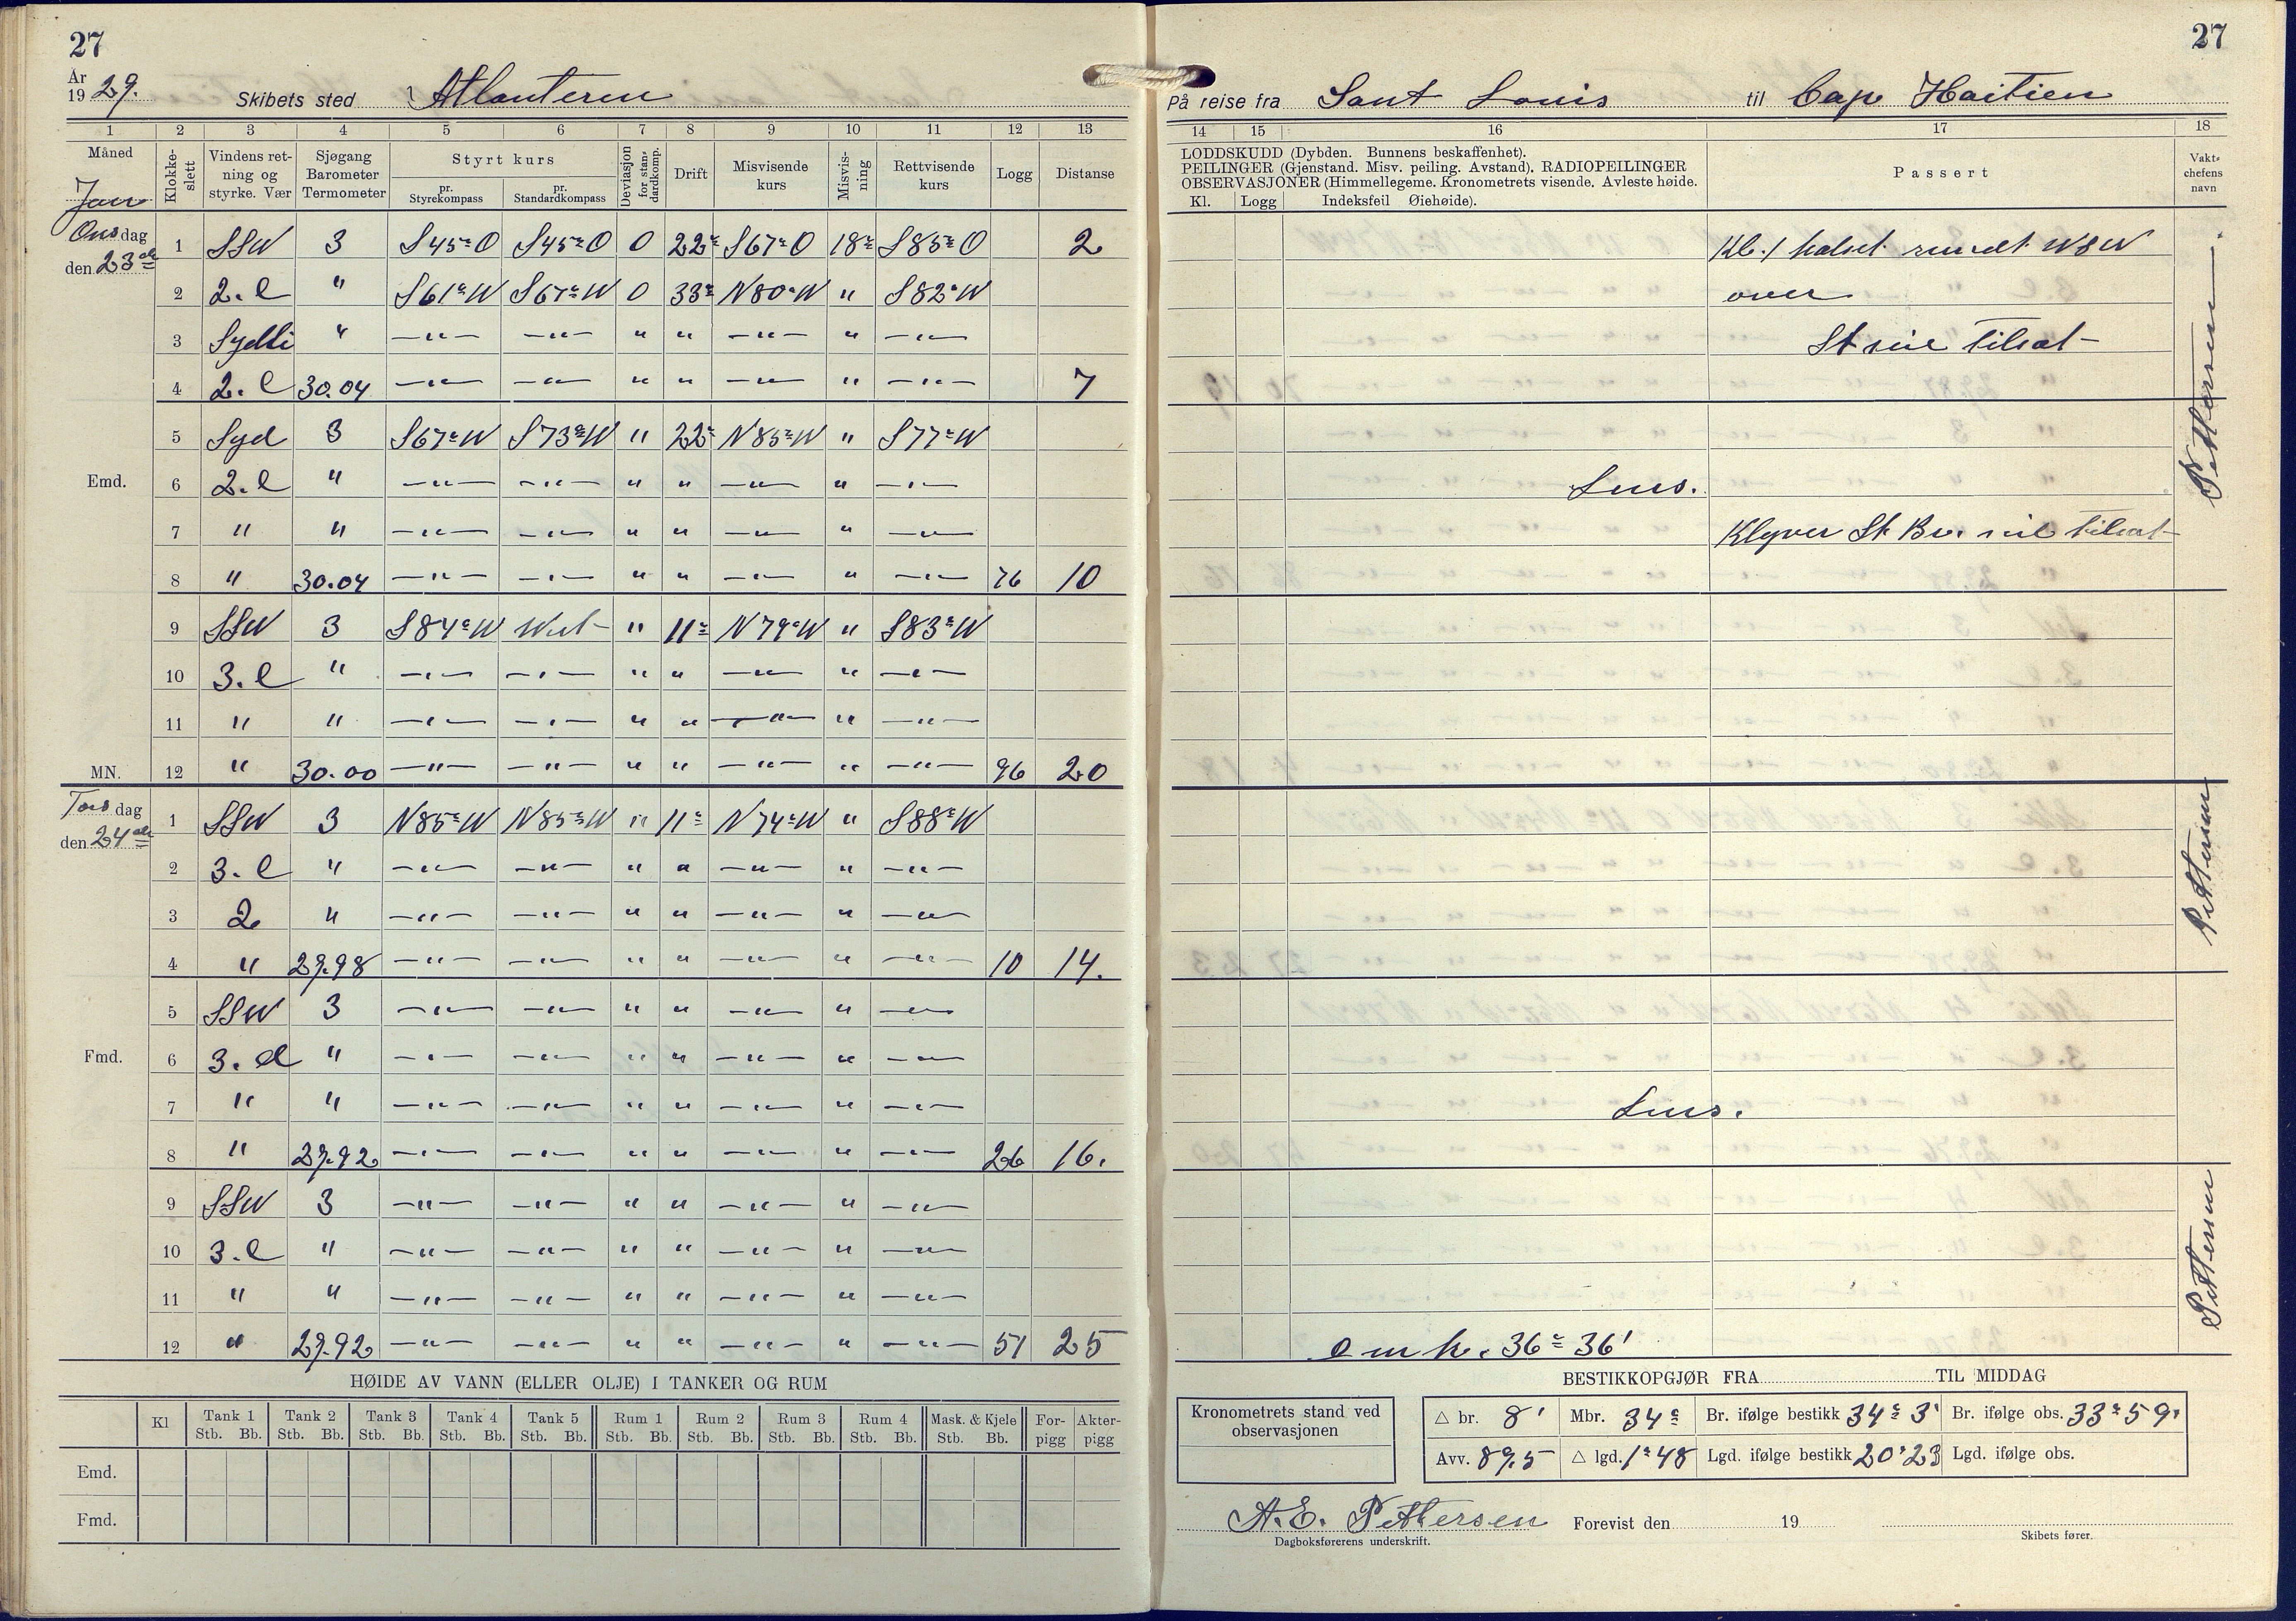 27
År
1929. Skibets sted Atlanteren
1 2 3 4 5 6 7 8 9 10 11 12 13
Måned Klokke-slett Vindens ret-ning og styrke. Vær Sjøgang Barometer Termometer Styrt kurs Deviasjon for stan-dardkomp. Drift Misvisende kurs Misvis-ning Rettvisende kurs Logg Distanse
pr. Styrekompass pr. Standardkompass
Jan
Onsdag 1 SSW 3 S45°O S45°O 0 22° S67°O 18° S85°O 2
den 23de
2 2. l " S61°W S67°W 0 33° N80°W " S82°W
3 Sydli " —"— —"— " " —"— " —"—
4 2. l 30.04 —"— —"— " " —"— " —"— 7
5 Syd 3 S67°W S73°W " 22° N85°W " S77°W
Emd. 6 2. l " —"— —"— " " —"— " —"—
7 " " —"— —"— " " —"— " —"—
8 " 30.04 —"— —"— " " —"— " —"— 76 10
9 SSW 3 S84°W West " 11° N79°W " S83°W
10 3. l " —"— —"— " " —"— " —"—
11 " " —"— —"— " " —"— " —"—
MN. 12 " 30.00 —"— —"— " " —"— " —"— 96 20
Torsdag 1 SSW 3 N85°W N85°W " 11° N74°W " S88°W
den 24de
2 3. l " —"— —"— " " —"— " —"—
3 2 " —"— —"— " " —"— " —"—
4 " 29.98 —"— —"— " " —"— " —"— 10 14.
5 SSW 3 —"— —"— " " —"— " —"—
Fmd. 6 3. d " —"— —"— " " —"— " —"—
7 " " —"— —"— " " —"— " —"—
8 " 29.92 —"— —"— " " —"— " —"— 26 16.
9 SSW 3 —"— —"— " " —"— " —"—
10 3. l " —"— —"— " " —"— " —"—
11 " " —"— —"— " " —"— " —"—
12 " 29.92 —"— —"— " " —"— " —"— 51 25
HØIDE AV VANN (ELLER OLJE) I TANKER OG RUM
Kl Tank 1 Tank 2 Tank 3 Tank 4 Tank 5 Rum 1 Rum 2 Rum 3 Rum 4 Mask. & Kjele For-pigg Akter-pigg
Stb. Bb. Stb. Bb. Stb. Bb. Stb. Bb. Stb. Bb. Stb. Bb. Stb. Bb. Stb. Bb. Stb. Bb. Stb. Bb.
Emd.
Fmd.
27
På reise fra Sant Louis til Cap Haitien
14 15 16 17 18
LODDSKUDD (Dybden. Bunnens beskaffenhet).
PEILINGER (Gjenstand. Misv. peiling. Avstand). RADIOPEILINGER
OBSERVASJONER (Himmellegeme. Kronometrets visende. Avleste høide.
Kl. Logg Indeksfeil Øiehøide).
Passert
Vakt-chefens navn
Kl. 1 halset rundt WSW
over
St seil tilsat
Lns.
Klyver St Br. seil tilsat
Pettersen
Pettersen
Lns.
Pettersen
36° 36'
BESTIKKOPGJØR FRA TIL MIDDAG
Kronometrets stand ved observasjonen
△ br. 8' Mbr. 34° Br. ifølge bestikk 34° 3' Br. ifølge obs. 33° 59'
Avv. 89,5 △ lgd. 1° 48 Lgd. ifølge bestikk 20° 23 Lgd. ifølge obs.
A.E. Pettersen Forevist den 19
Dagboksførerens underskrift. Skibets fører.